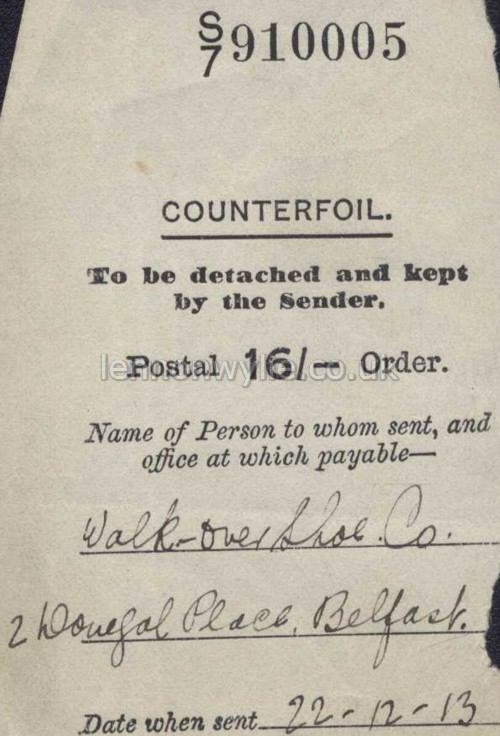 S/7 910005
COUNTERFOIL.
To be detached and kept
by the Sender.
Postal 16/- Order.
lennonwylie.co.uk
Name of Person to whom sent, and
office at which payable—
Walk-over Shoe Co.
2 Donegal Place, Belfast.
Date when sent 22-12-13